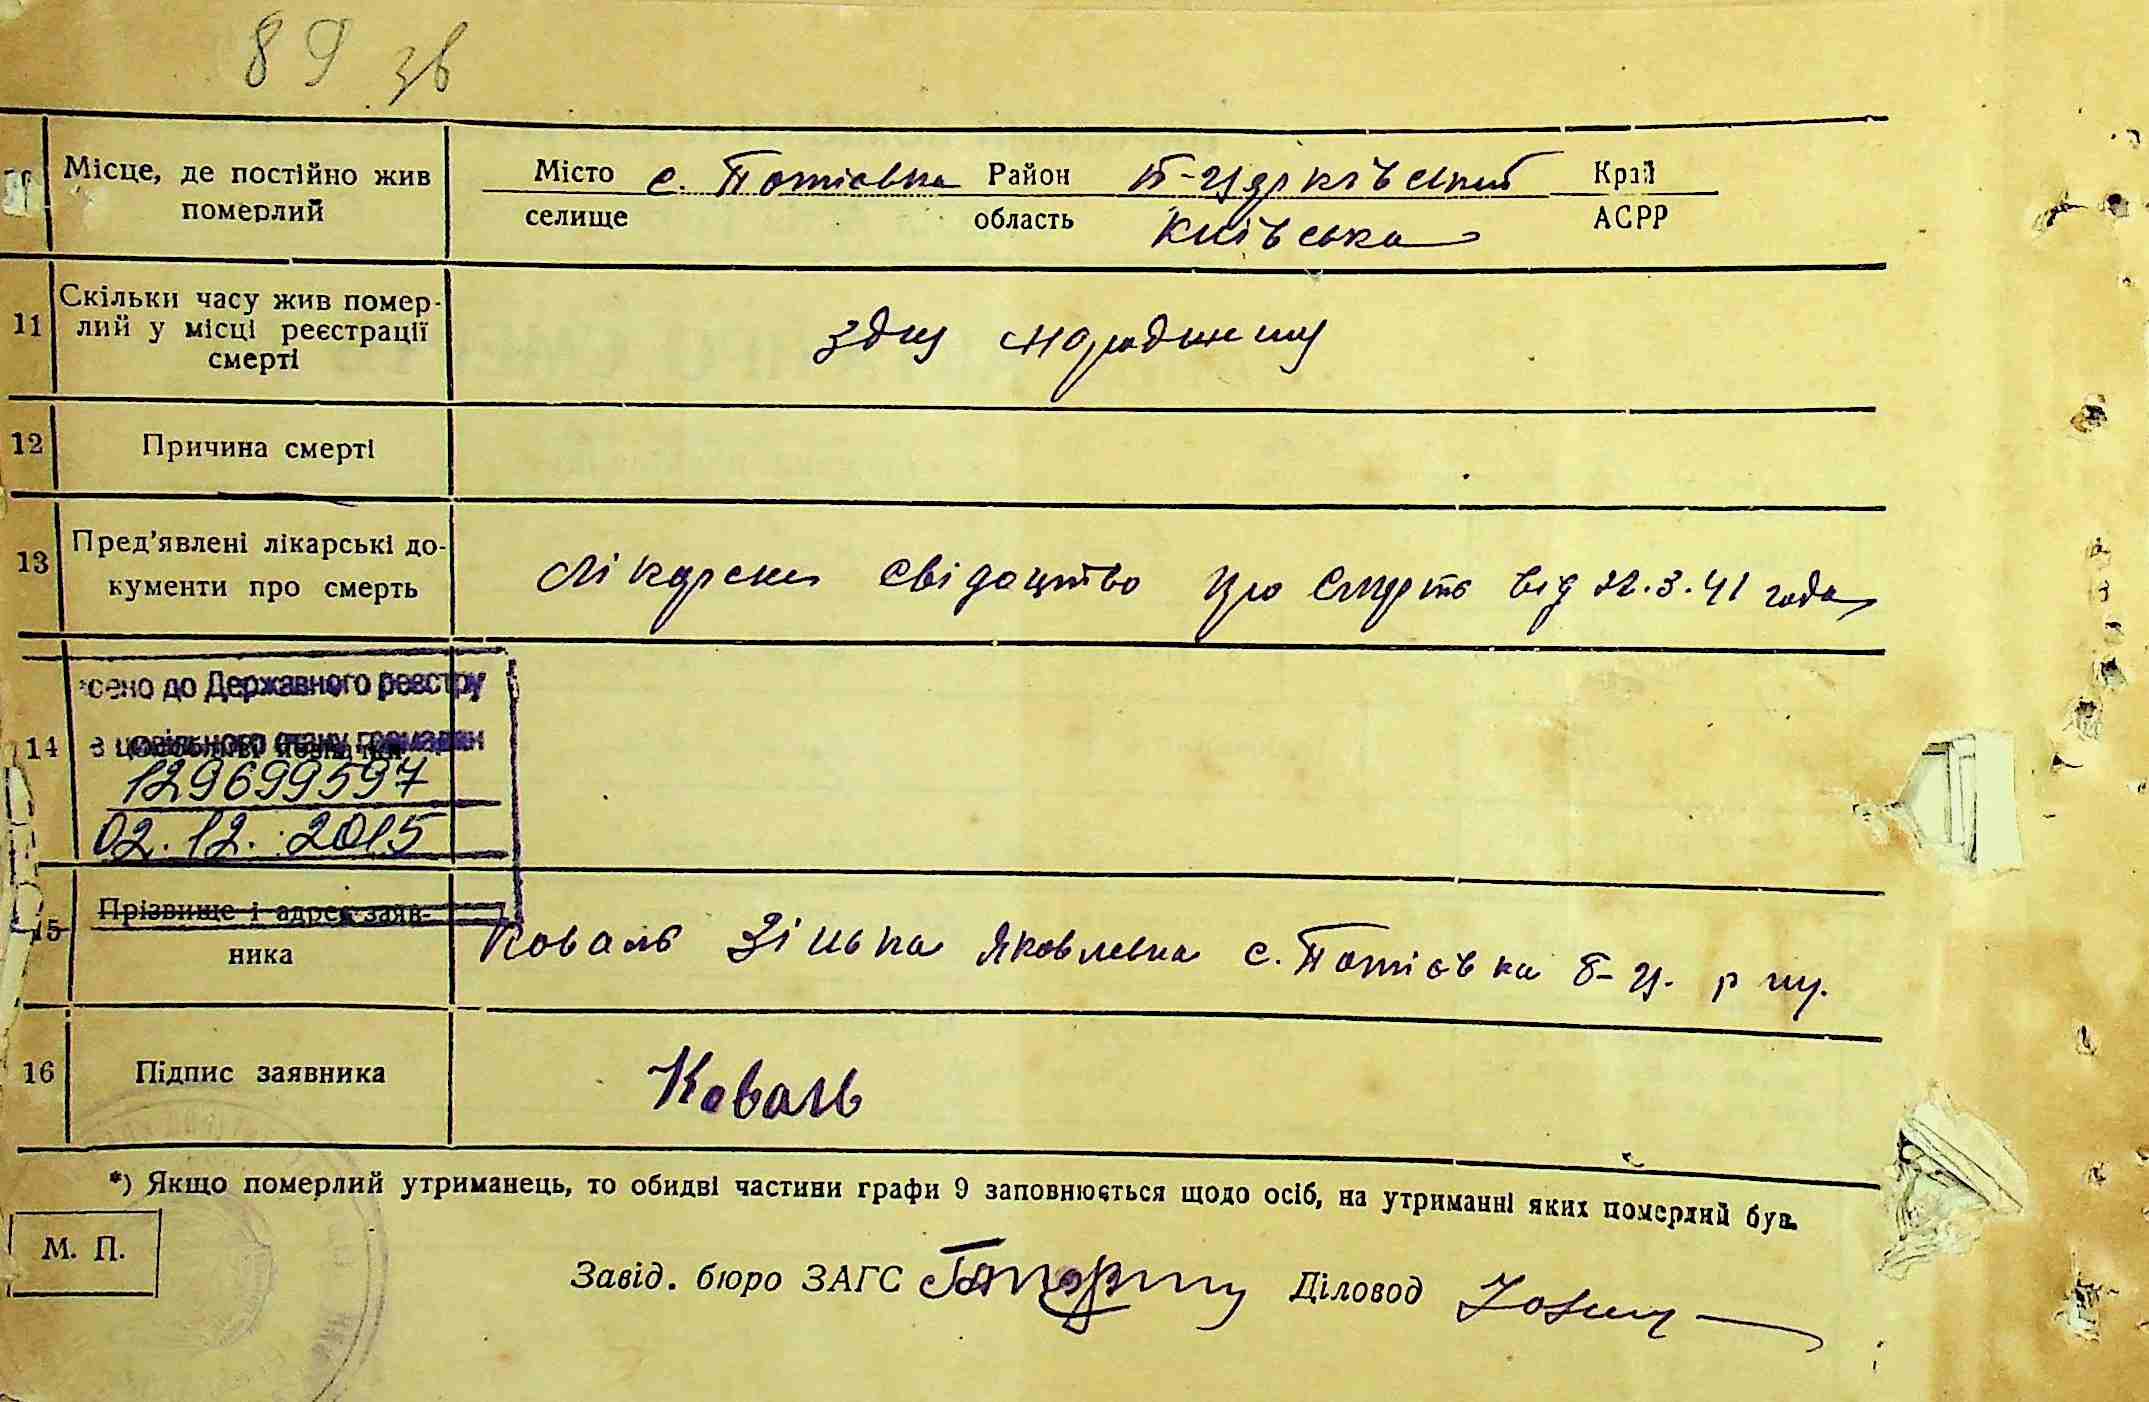 89 зв
Місце, де постійно жив
померлий
Місто с. Потіевка Район Б-Церківский Край
селище область Київська АСРР
11 Скільки часу жив помер-
лий у місці реєстрації
смерті
з дня народження
12 Причина смерті
13 Пред'явлені лікарські до-
кументи про смерть
Лікарске свідоцтво про смерть від 22.3.41 года
сено до Державного реєстру
14 в цивільного стану громадян
129699597
02.12.2015
15 Прізвище і адрес заяв-
ника
Коваль Зінька Яковлевна с. Потіевка Б-Ц. р ну.
16 Підпис заявника Коваль
*) Якщо померлий утриманець, то обидві частини графи 9 заповнюється щодо осіб, на утриманні яких померлий був.
М. П.
Завід. бюро ЗАГС Діловод